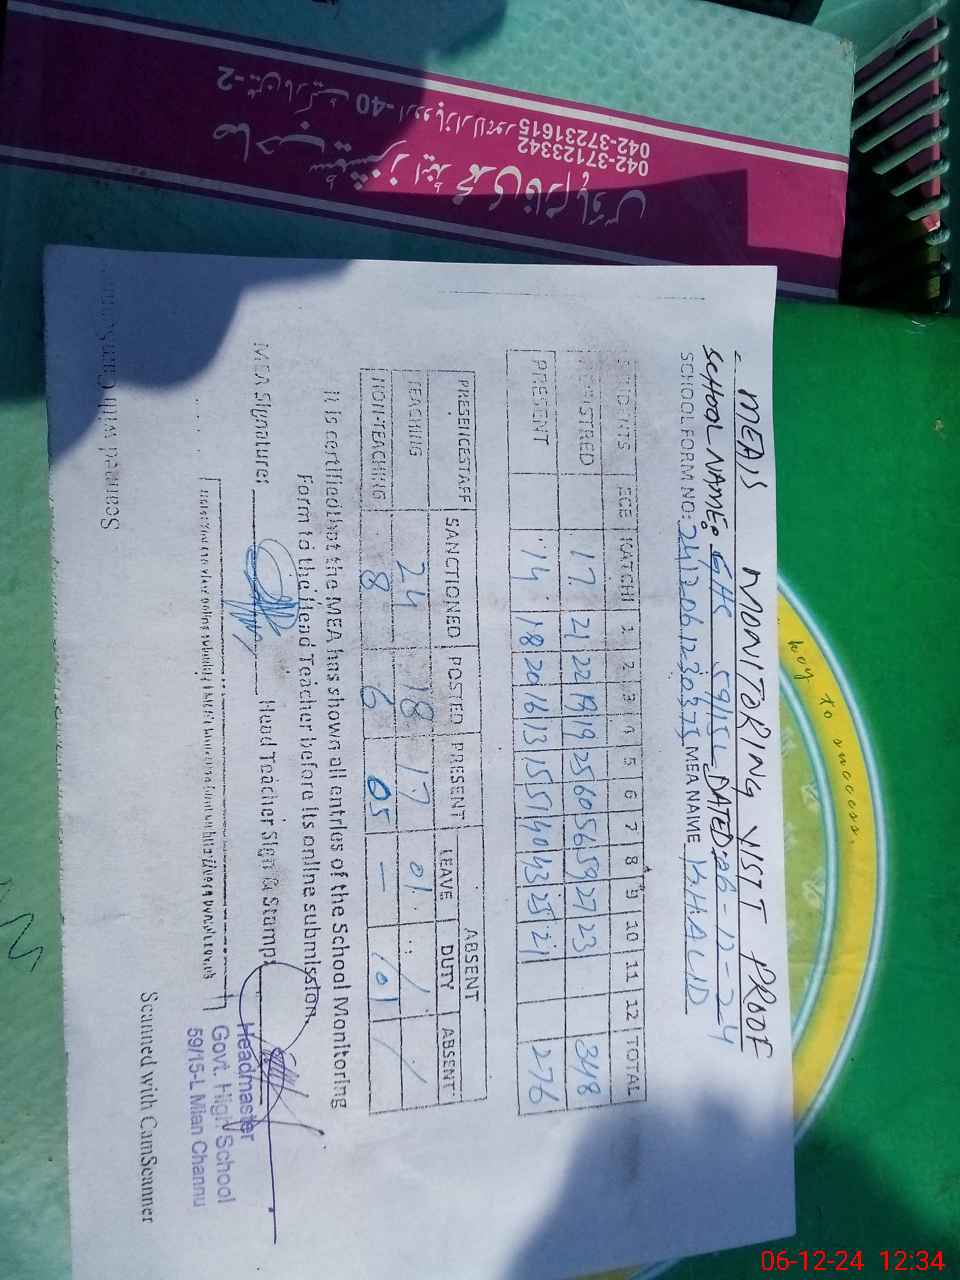 MEA'S MONITORING VIST PROOF
SCHOOL NAME: GHS 59/15L DATED: 06-12-24
SCHOOL FORM NO: MEA NAME KHALID
STUDENTS ECE KATCHI 1 2 3 4 5 6 7 8 9 10 11 12 TOTAL
17 21 22 19 19 25 60 56 59 27 23 348
PRESENT 14 18 20 16 13 15 51 40 43 25 21 276
PRESENCESTAFF SANCTIONED POSTED PRESENT ABSENT
LEAVE DUTY ABSENT
TEACHING 24 18 17 01 / /
NON-TEACHING 8 6 05 — 01 /
It is certified that the MEA has shown all entries of the School Monitoring
Form to the Head Teacher before its online submission.
MEA Signature: Head Teacher Sign & Stamp:
Headmaster
Govt. High School
59/15-L Mian Channu
Scanned with CamScanner
Scanned with CamScanner
key to success.
042-37123342
042-37231615
06-12-24 12:34